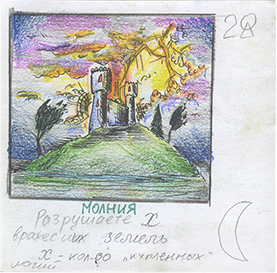 2Я
МОЛНИЯ
Разрушаете X
вражеских земель
X = кол-во „купленных"